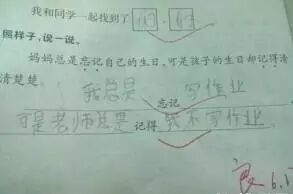 我和同学一起找到了
照样子，说一说。
妈妈总是忘记自己的生日，可是孩子的生日却记得清
清楚楚。
我总是 忘记 写作业
可是老师总是 记得 我不写作业
良 6.1